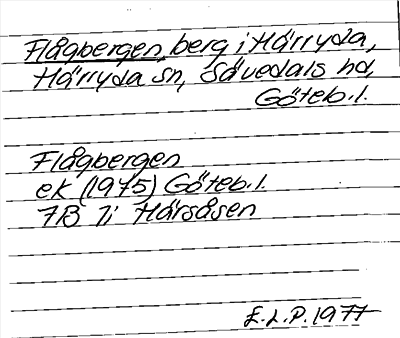 Flågbergen, berg i Härryda,
Härryda sn, Sävedals hd,
Göteb.l.
Flågbergen
ek (1975) Göteb.l.
7B 7i Hårsåsen
E.L.P. 1977